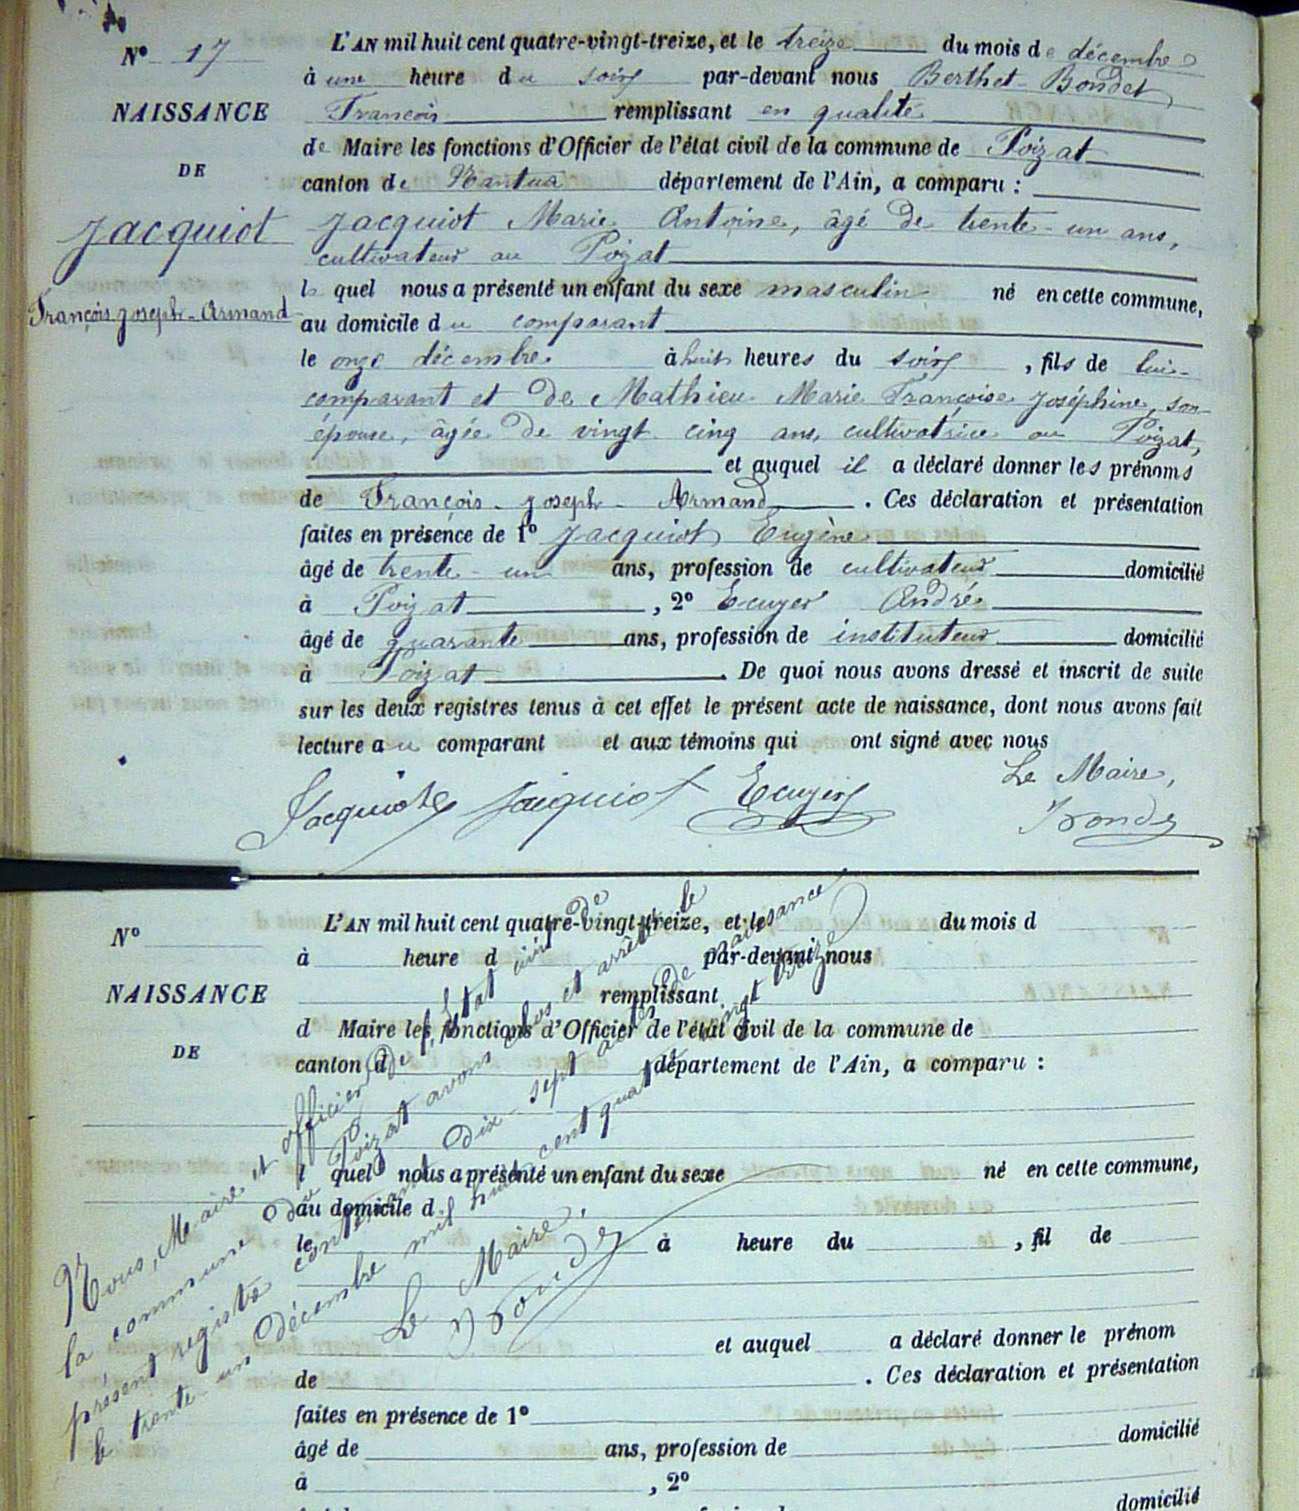 N° 17
NAISSANCE
DE
Jacquiot
François Joseph-Armand
L'AN mil huit cent quatre-vingt-treize, et le treize du mois de décembre
à une heure du soir par-devant nous Berthet-Bondet
François remplissant en qualité
de Maire les fonctions d'Officier de l'état civil de la commune de Poizat
canton de Nantua département de l'Ain, a comparu :
Jacquiot Marie Antoine, âgé de trente-un ans,
cultivateur au Poizat
lequel nous a présenté un enfant du sexe masculin né en cette commune,
au domicile du comparant
le onze décembre à huit heures du soir, fils de lui-
comparant et de Mathieu Marie Françoise Joséphine, son
épouse, âgée de vingt cinq ans, cultivatrice au Poizat,
et auquel il a déclaré donner les prénoms
de François-Joseph-Armand. Ces déclaration et présentation
faites en présence de 1° Jacquiot Eugène
âgé de trente-un ans, profession de cultivateur domicilié
à Poizat, 2° Ecuyer André
âgé de quarante ans, profession de instituteur domicilié
à Poizat. De quoi nous avons dressé et inscrit de suite
sur les deux registres tenus à cet effet le présent acte de naissance, dont nous avons fait
lecture au comparant et aux témoins qui ont signé avec nous
Le Maire,
Jacquiot Jacquiot Ecuyer Bondet
N°
NAISSANCE
DE
L'AN mil huit cent quatre-vingt-treize, et le du mois d
à heure d par-devant nous
remplissant
d Maire les fonctions d'Officier de l'état civil de la commune de
canton d département de l'Ain, a comparu :
l quel nous a présenté un enfant du sexe né en cette commune,
au domicile d
le à heure du , fil de
et auquel a déclaré donner le prénom
de . Ces déclaration et présentation
faites en présence de 1°
âgé de ans, profession de domicilié
à , 2°
domicilié
Nous, Maire et officier de l'état civil de
la commune du Poizat avons clos et arrêté le
présent registre contenant dix-sept actes de naissance
le trente-un décembre mil huit cent quatre vingt treize
Le Maire,
Bondet